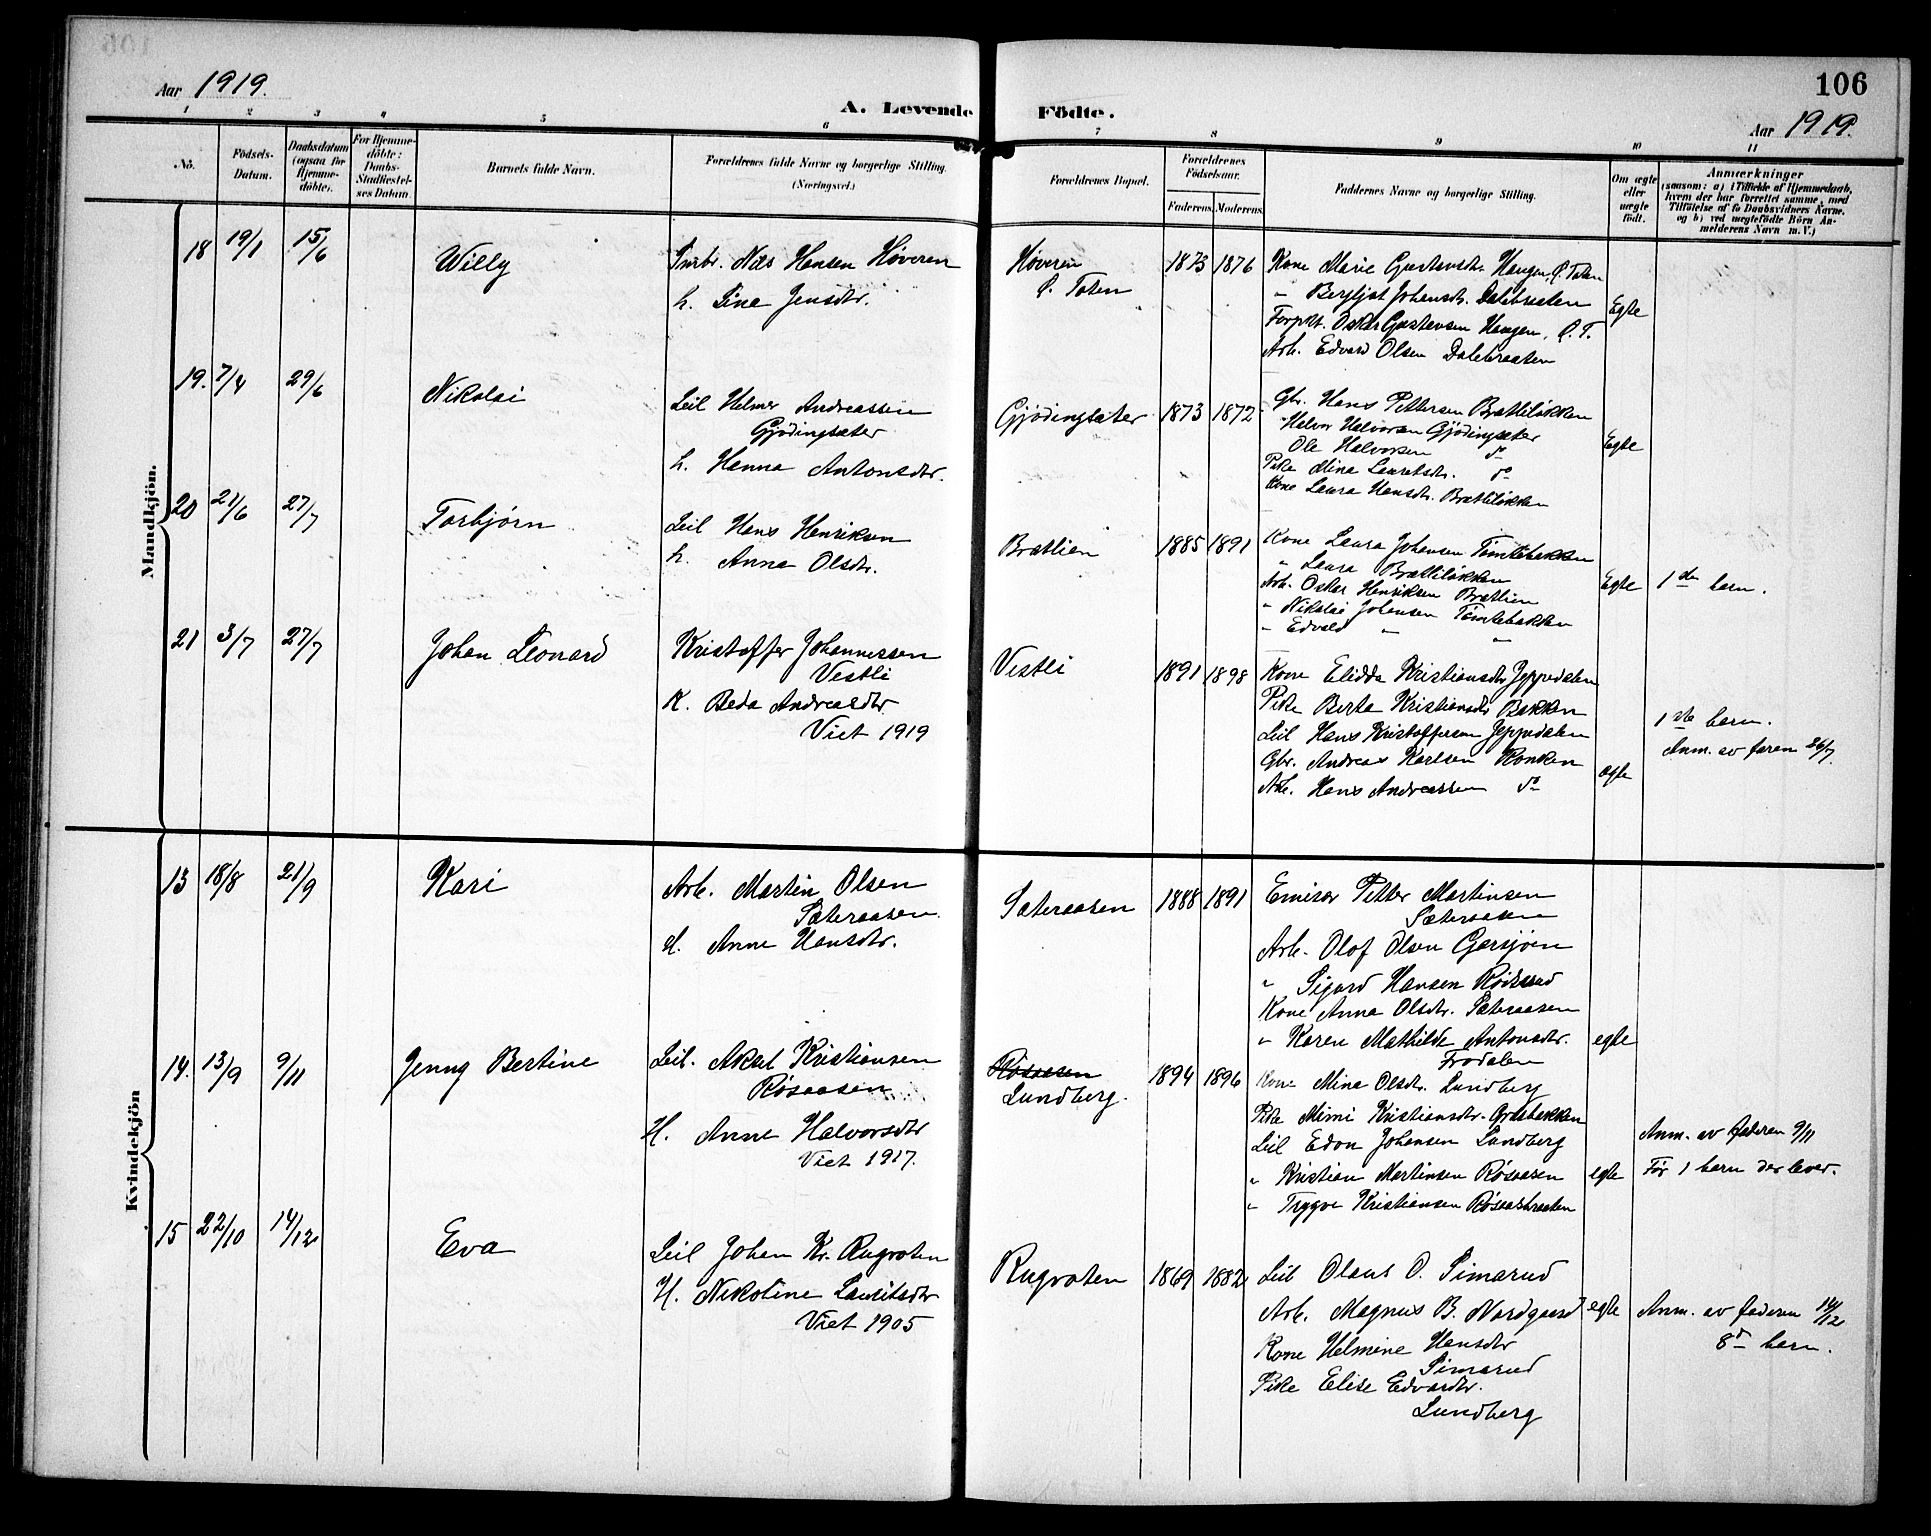 106
Aar 1919.
A. Levende Födte.
Aar 1919.
1 2 3 4 5 6 7 8 9 10 11
No.
Födsels-
Datum.
Daabsdatum
(ogsaa for
Hjemme-
döbte).
For Hjemme-
döbte:
Daabs-
Stadfæstel-
ses Datum.
Barnets fulde Navn.
Forældrenes fulde Navne og borgerlige Stilling.
(Næringsvei.)
Forældrenes Bopæl.
Forældrenes
Födselsaar.
Faderens. Moderens.
Faddernes Navne og borgerlige Stilling.
Om ægte
eller
uægte
födt.
Anmærkninger
(saasom: a) i Tilfælde af Hjemmedaab,
hvem der har forrettet samme, med
Tilföielse af to Daabsvidners Navne,
og b) ved uægtefödte Börn An-
melderens Navn m. V.)
Mandkjön.
18 19/1 15/6
Willy
Smbr. Nils Hansen Høveren
h. Lina Jensdtr.
Høveren
Ø. Toten
1873 1876
Kone Marie Gustavsdtr. Haugen, Ø. Toten
" Bergljot Johansdtr. Dalebraaten
Forpkt. Oskar Gustavsen Haugen, Ø. T.
Arb. Edvard Olsen Dalebraaten
Egte
19. 7/4 29/6
Nikolai
Leil Helmer Andreassen
Gjödingsæter
h. Hanna Antonsdtr.
Gjödingsæter
1873 1872
Gbr. Hans Pettersen Brætteløkken
Halvor Halvorsen Gjödingsæter
Ole Halvorsen do
Pike Mina Lauritsdtr. do
Kone Laura Hansdtr. Brætteløkken
Egte
20 21/6 27/7
Torbjørn
Leil Hans Henriksen
h. Anna Olsdtr.
Brætlien
1885 1891
Kone Laura Johansen Tömtebakken
" Laura Brætteløkken
Arb. Oskar Henriksen Brætlien
" Nikolai Johansen Tömtebakken
" Edvald " "
Egte
1ste barn.
21 3/7 27/7
Johan Leonard
Kristoffer Johannessen
Vestli
K. Beda Andreasdtr
Viet 1919
Vestli
1891 1898
Kone Elidda Kristiansdtr Jeppedalen
Pike Berta Kristiansdtr Bakken
Leil Hans Kristoffersen Jeppedalen
Gbr. Andreas Karlsen Konken
Arb. Hans Andreassen do
ægte
1ste barn.
Anm. av faren 26/7
Kvindekjön
13 18/8 21/9
Kari
Arb. Martin Olsen
Sæteraasen.
H. Anne Hansdtr.
Sæteraasen
1888 1891
Emisær Petter Martinsen
Sæteraasen
Arb. Olof Olsen Garsjøen
" Sigurd Hansen Rødsrud
Kone Anna Olsdtr. Sæteraasen
" Karen Mathilde Antonsdtr.
Frodalen
egte
14. 13/9 9/11
Jenny Bertine
Leil. Aksel Kristiansen
Røsaasen
H. Anne Halvorsdtr
Viet 1917.
Røsaasen
Lundberg.
1894 1896
Kone Mina Olsdtr. Lundberg
Pike Mimi Kristiansdtr.
Leil Edon Johansen Lundberg
" Kristian Martinsen Røsaasen
" Trygve Kristiansen Røsaasbraaten
egte
Anm. av faderen 9/11
Før 1 barn der lever.
15 22/10 14/12
Eva
Leil Johan Kr. Rugroten
H. Nikoline Lauritsdtr
Viet 1905
Rugroten
1869 1882
Leil Olaus O. Simarud
Arb. Magnus B. Nordgaard
Kone Helmine Hansdtr
Simarud
Pike Elise Edvardtr.
Lundberg
egte
Anm. av faderen 14/12
8de barn.